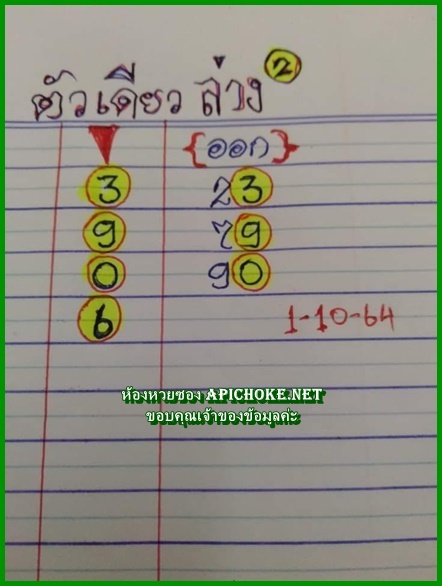 ตัวเดียวล่าง 2
{ออก}
3 23
9 79
0 90
6 1-10-64
ห้องหวยซอง APICHOKE.NET
ขอบคุณเจ้าของข้อมูลค่ะ